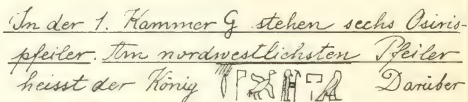 In der 1. Kammer G stehen sechs Osiris-
pfeiler. Am nordwestlichsten Pfeiler
heisst der König Darüber